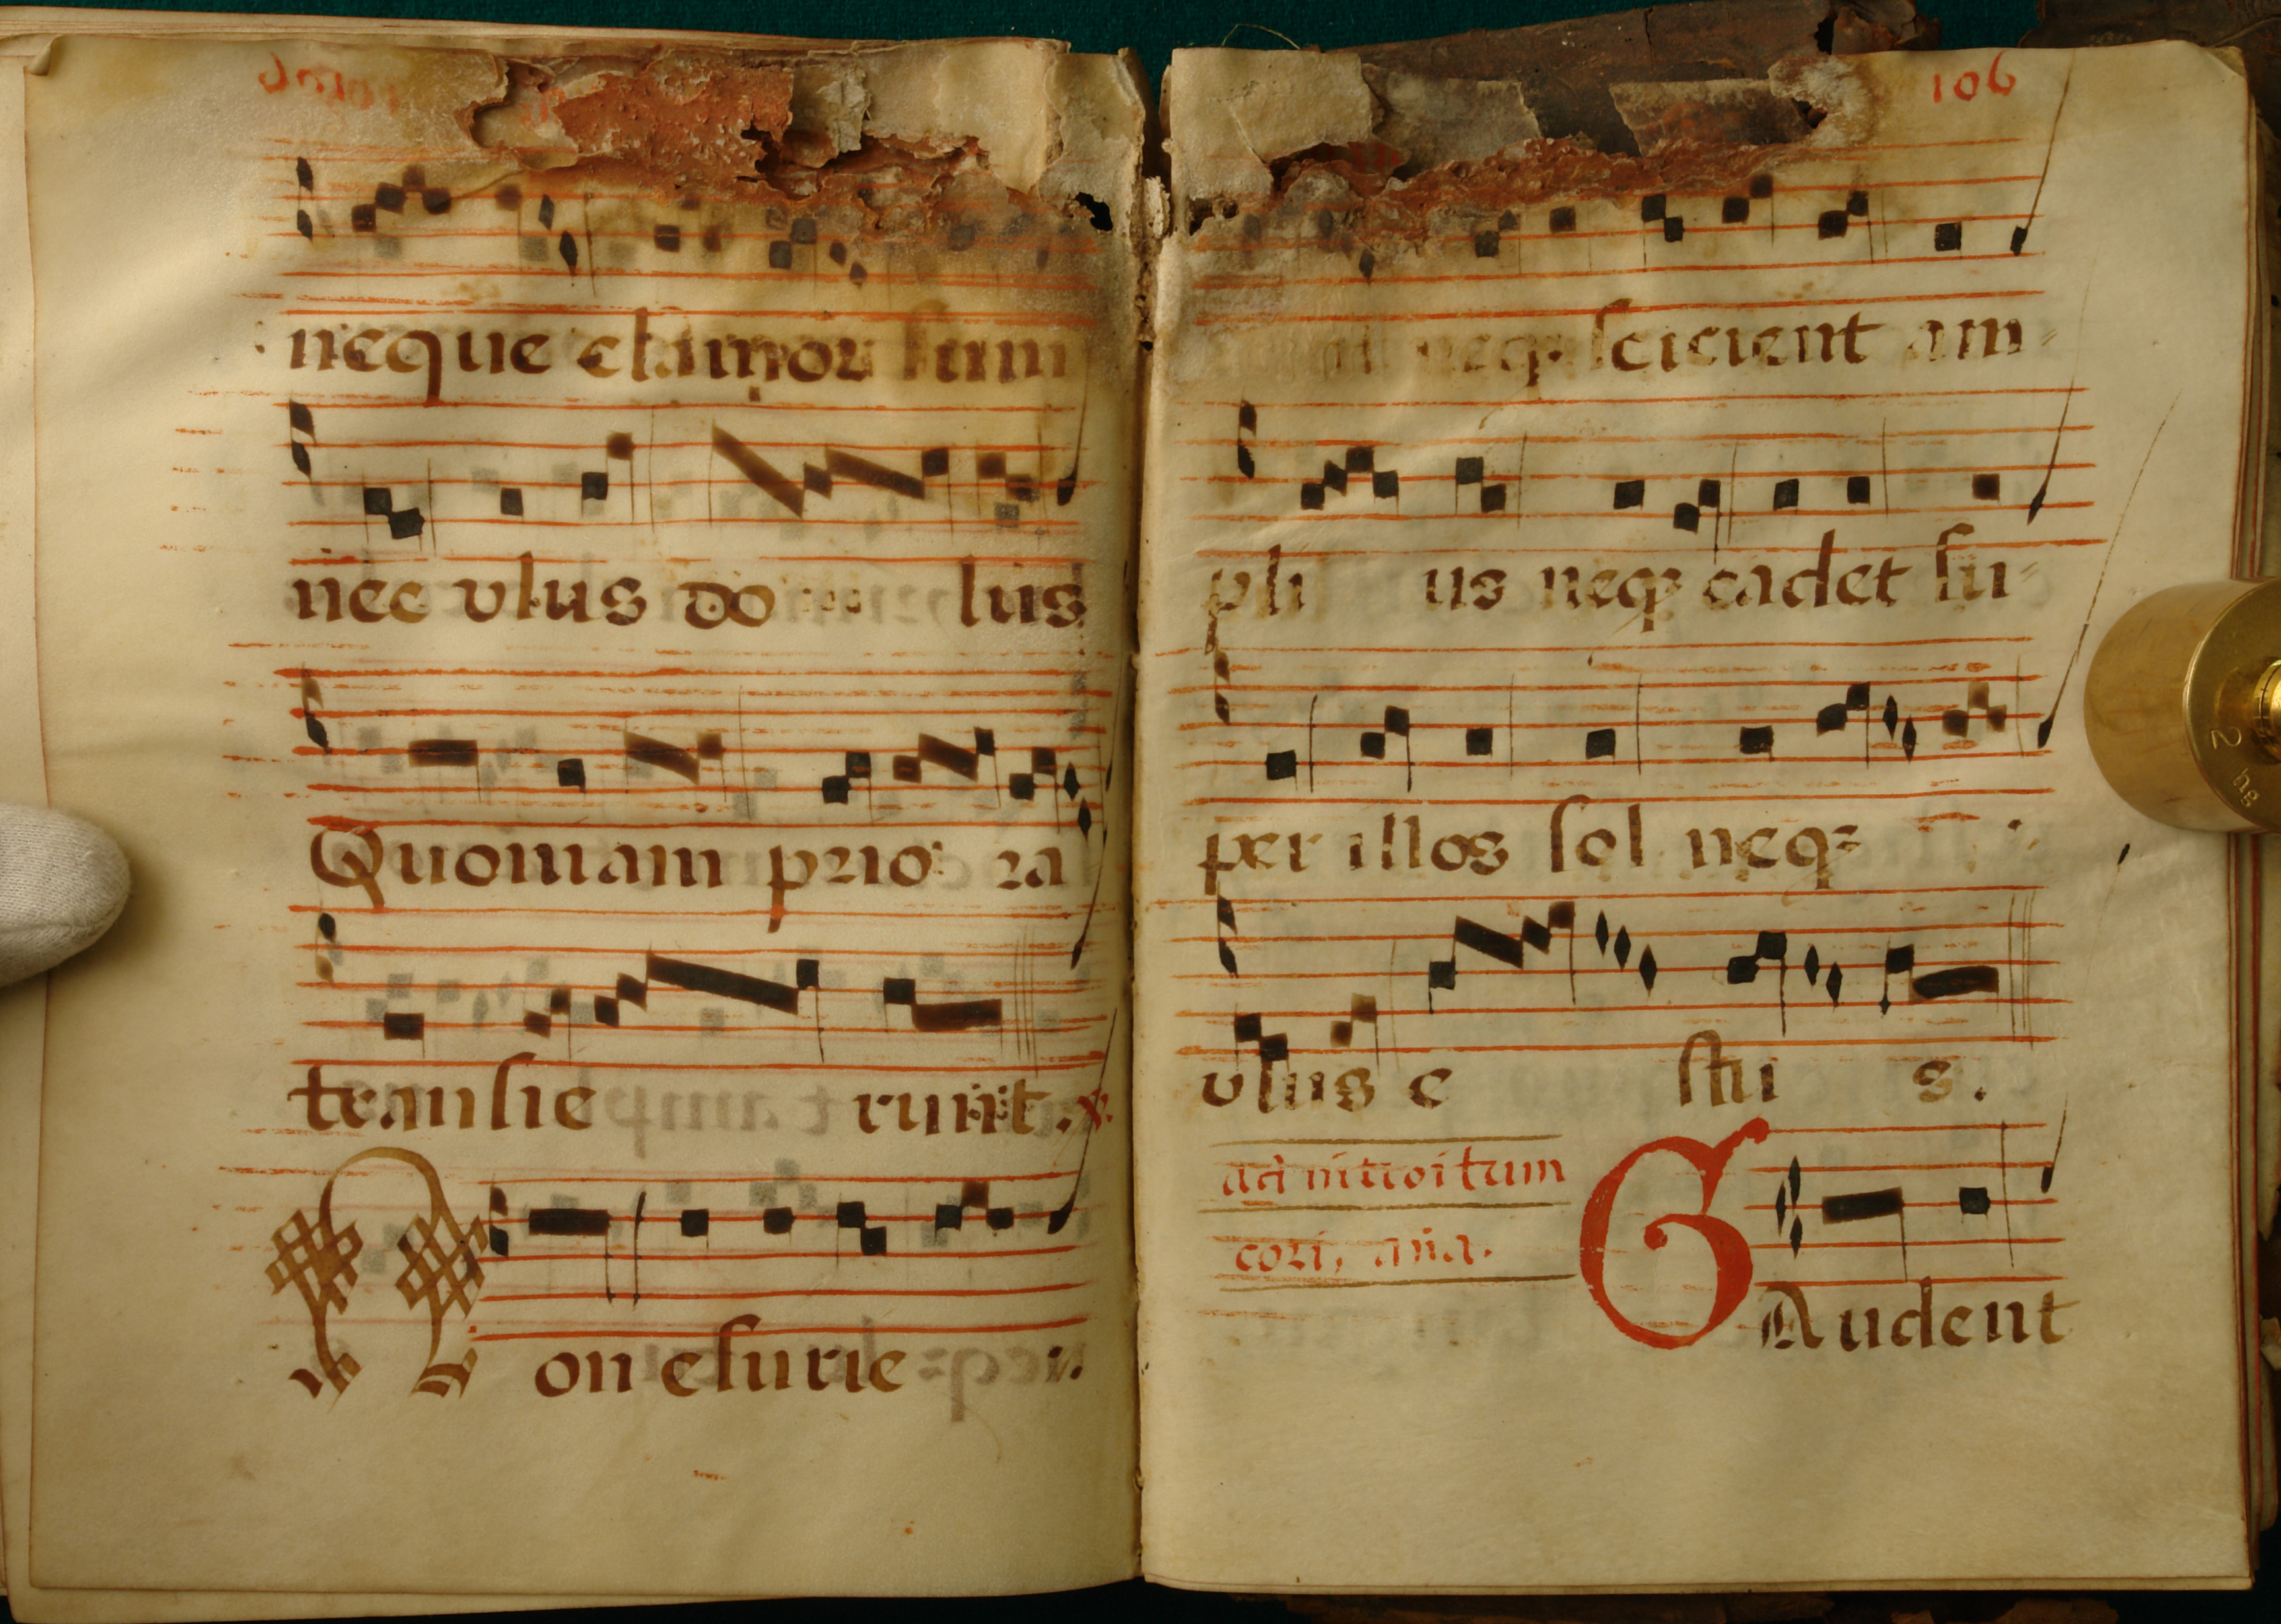 neque clamor
nec vlus do lus
Quoniam prio ra
transie runt.
on esurie
106
neq; scicient am=
pli us neq; cadet su=
per illos sol neq;
vlus e stu s.
ad introitum
cori, aña.
GAudent
2 hg